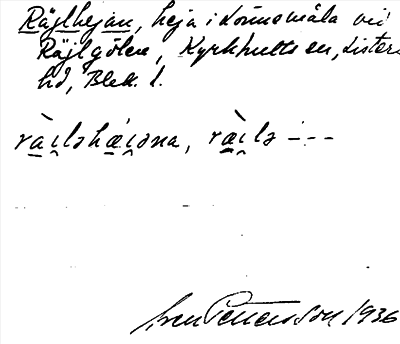 Räjlhejan, heja i Lönnemåla vid
Räjlgölen, Kyrkhults sn, Listers
hd, Blek. l.
ràı̯ləhǽı̯əna, ræ̀ı̯lə ---
Sven Pettersson 1936